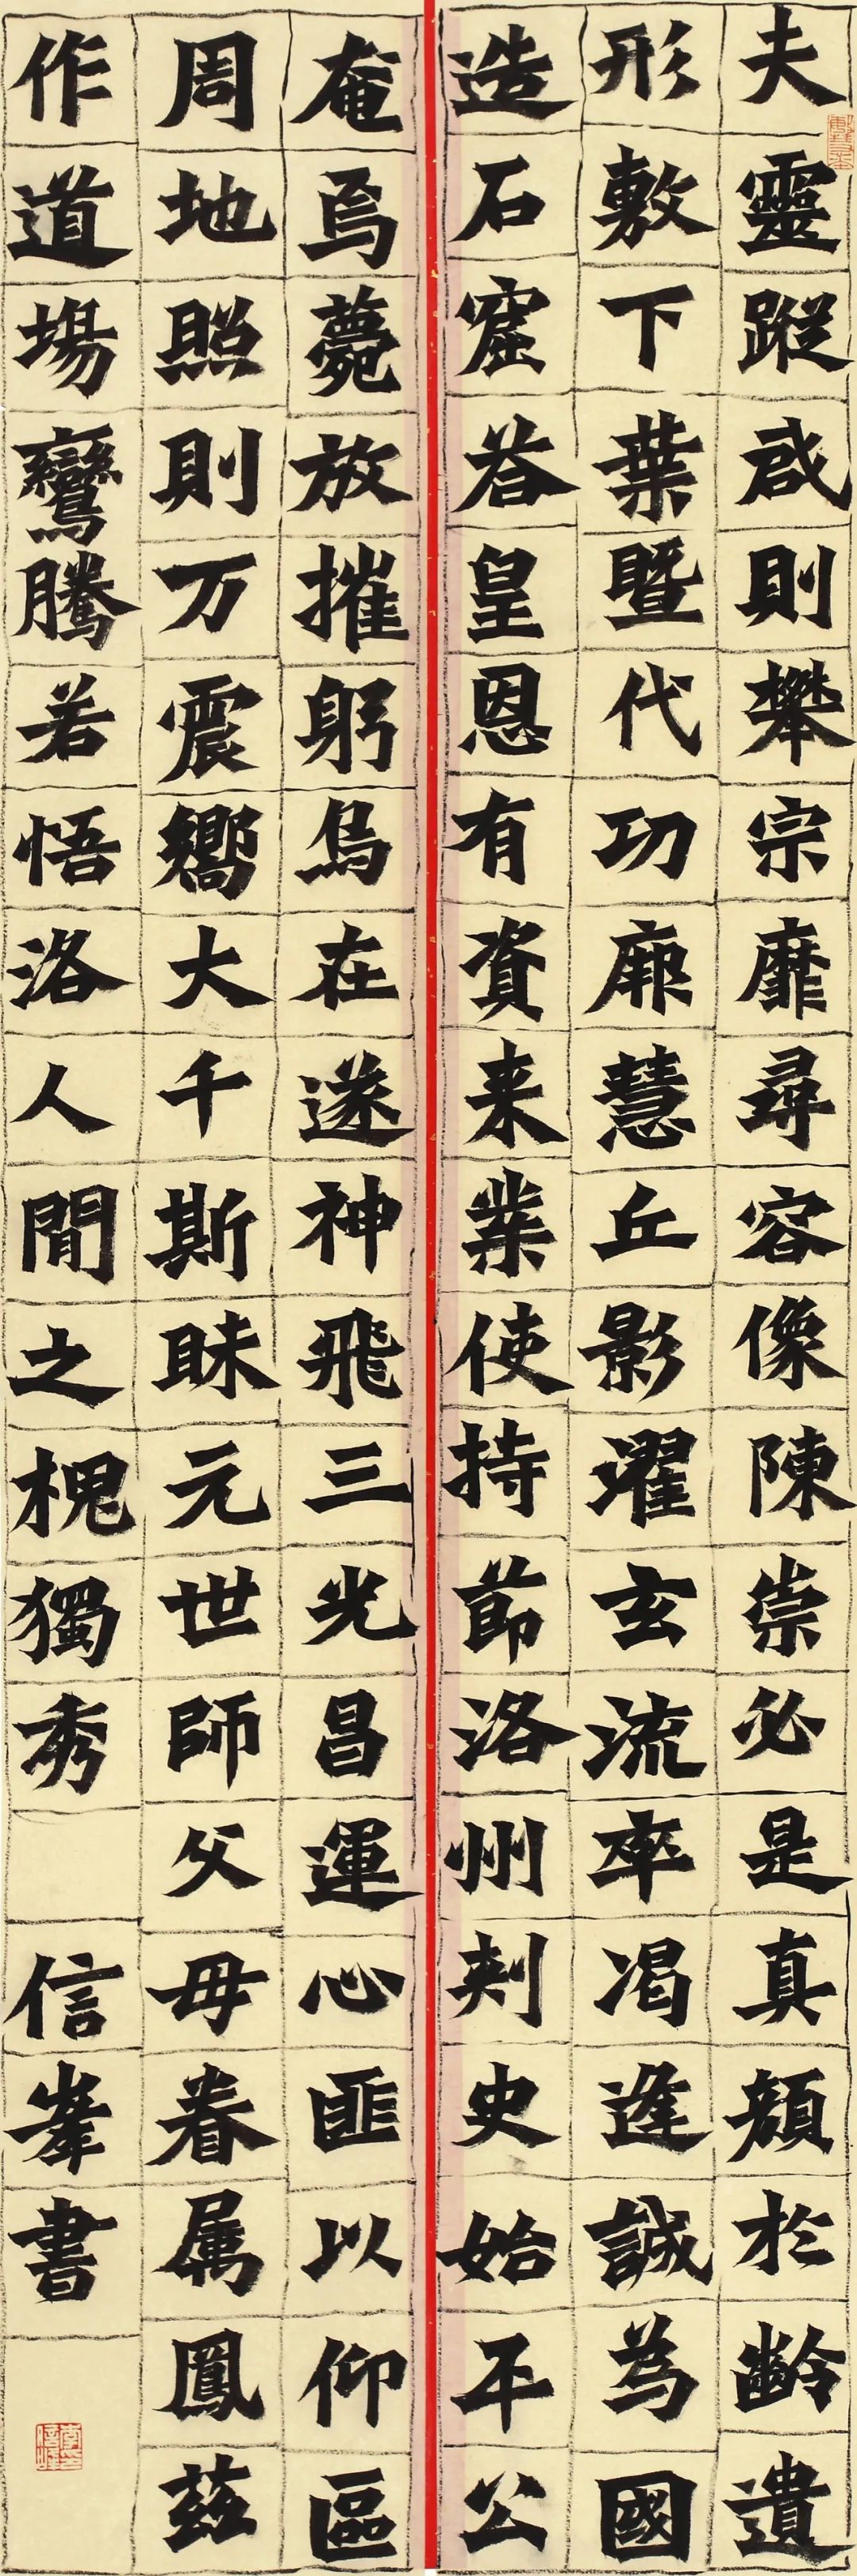 夫靈蹤啟則攀宗靡尋容像陳崇必是真顏於齡遺
形敷下葉暨代功廓慧丘影濯玄流率渴逢誠為國
造石窟荅皇恩有資来業使持節洛州刺史始平公
奄焉薨放摧躬烏在遂神飛三光昌運心匪以仰區
周地照則万震嚮大千斯昧元世師父母眷属鳳茲
作道場鸞騰若悟洛人間之槐獨秀
信峯書